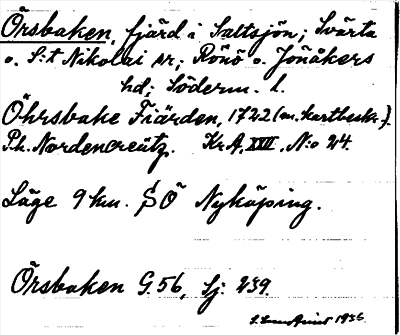 Örsbaken, fjärd i Saltsjön; Svärta
o. S:t Nikolai sr; Rönö o. Jönåkers
hd; Söderm. l.
Öhrsbake Fiärden, 1722 (m. kartbeskr.).
Ph. Nordencreütz. Kr.A. XVIII. N:o 24.
Läge 9 km. SÖ Nyköping.
Örsbaken G. 56, Sj: 239.
1936.